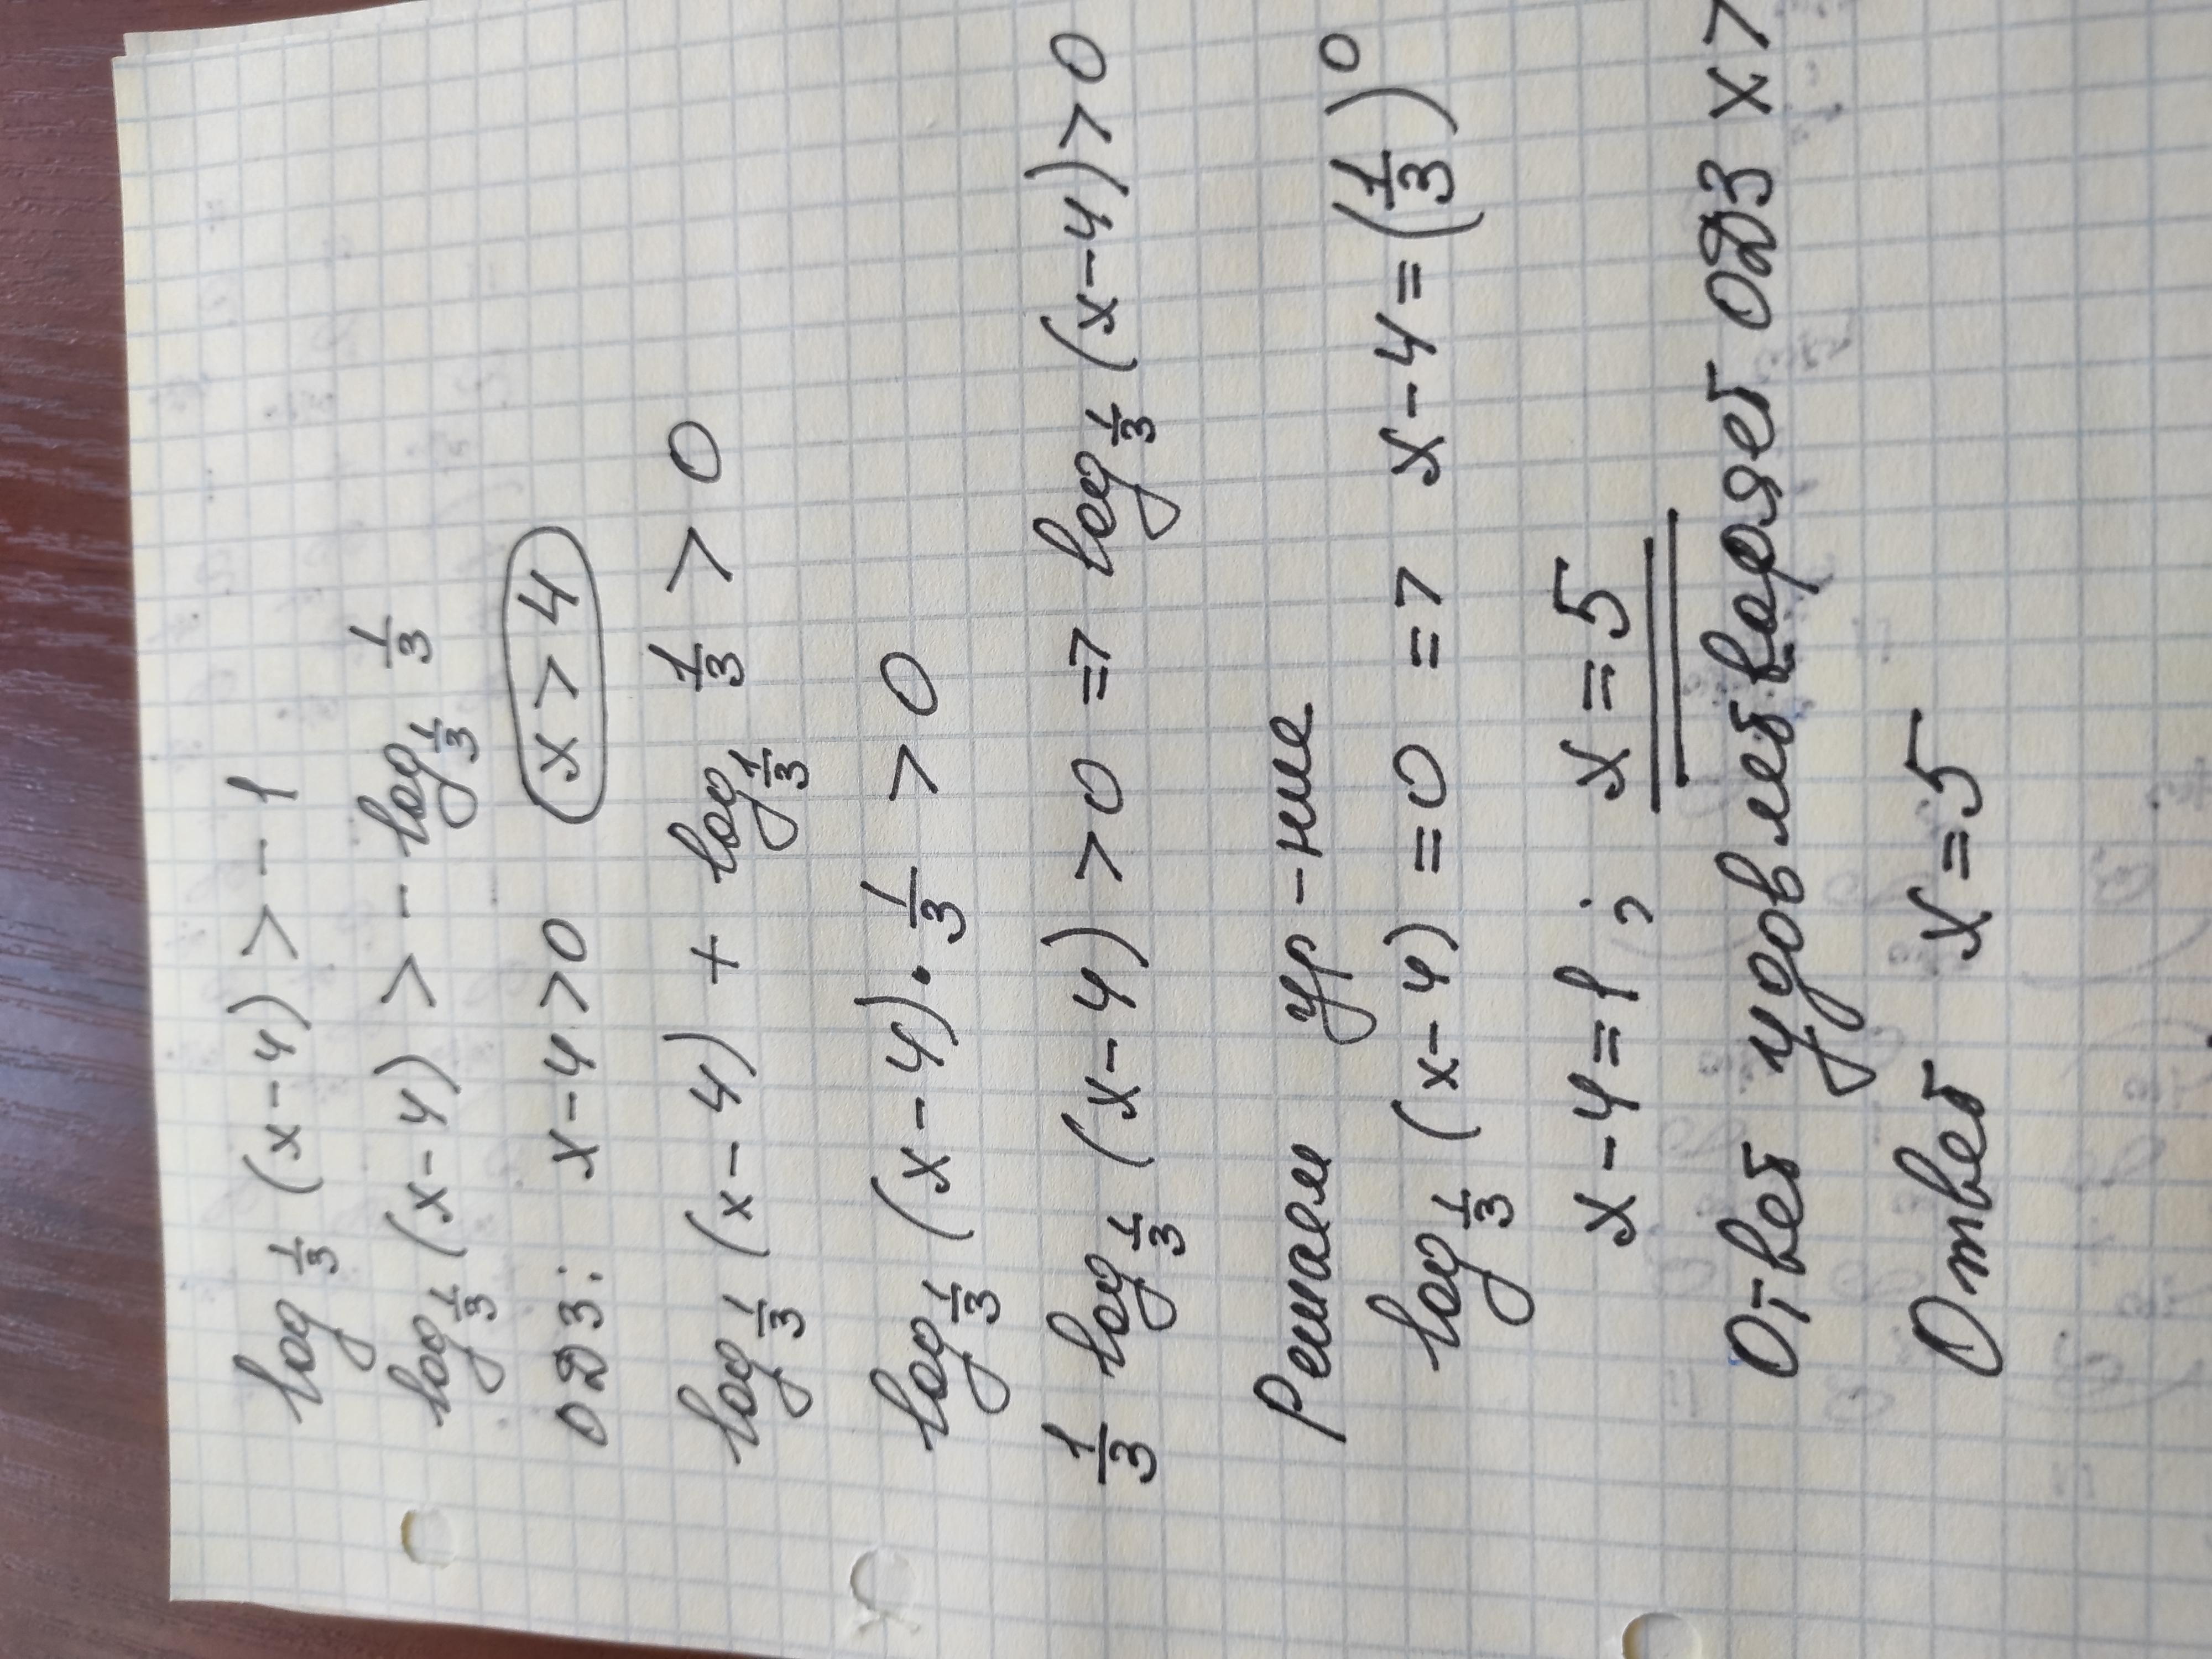 log 1/3 (x-4) > -1
log 1/3 (x-4) > - log 1/3 1/3
ОДЗ: x-4>0 x>4
log 1/3 (x-4) + log 1/3 1/3 > 0
log 1/3 (x-4) · 1/3 > 0
1/3 log 1/3 (x-4) > 0 => log 1/3 (x-4) > 0
Решаем ур-ние
log 1/3 (x-4) = 0 => x-4 = (1/3)^0
x-4=1; x=5
Ответ удовлетворяет ОДЗ x>
Ответ x=5